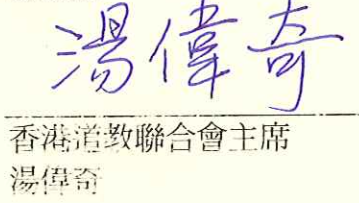 湯偉奇
香港道教聯合會主席
湯偉奇